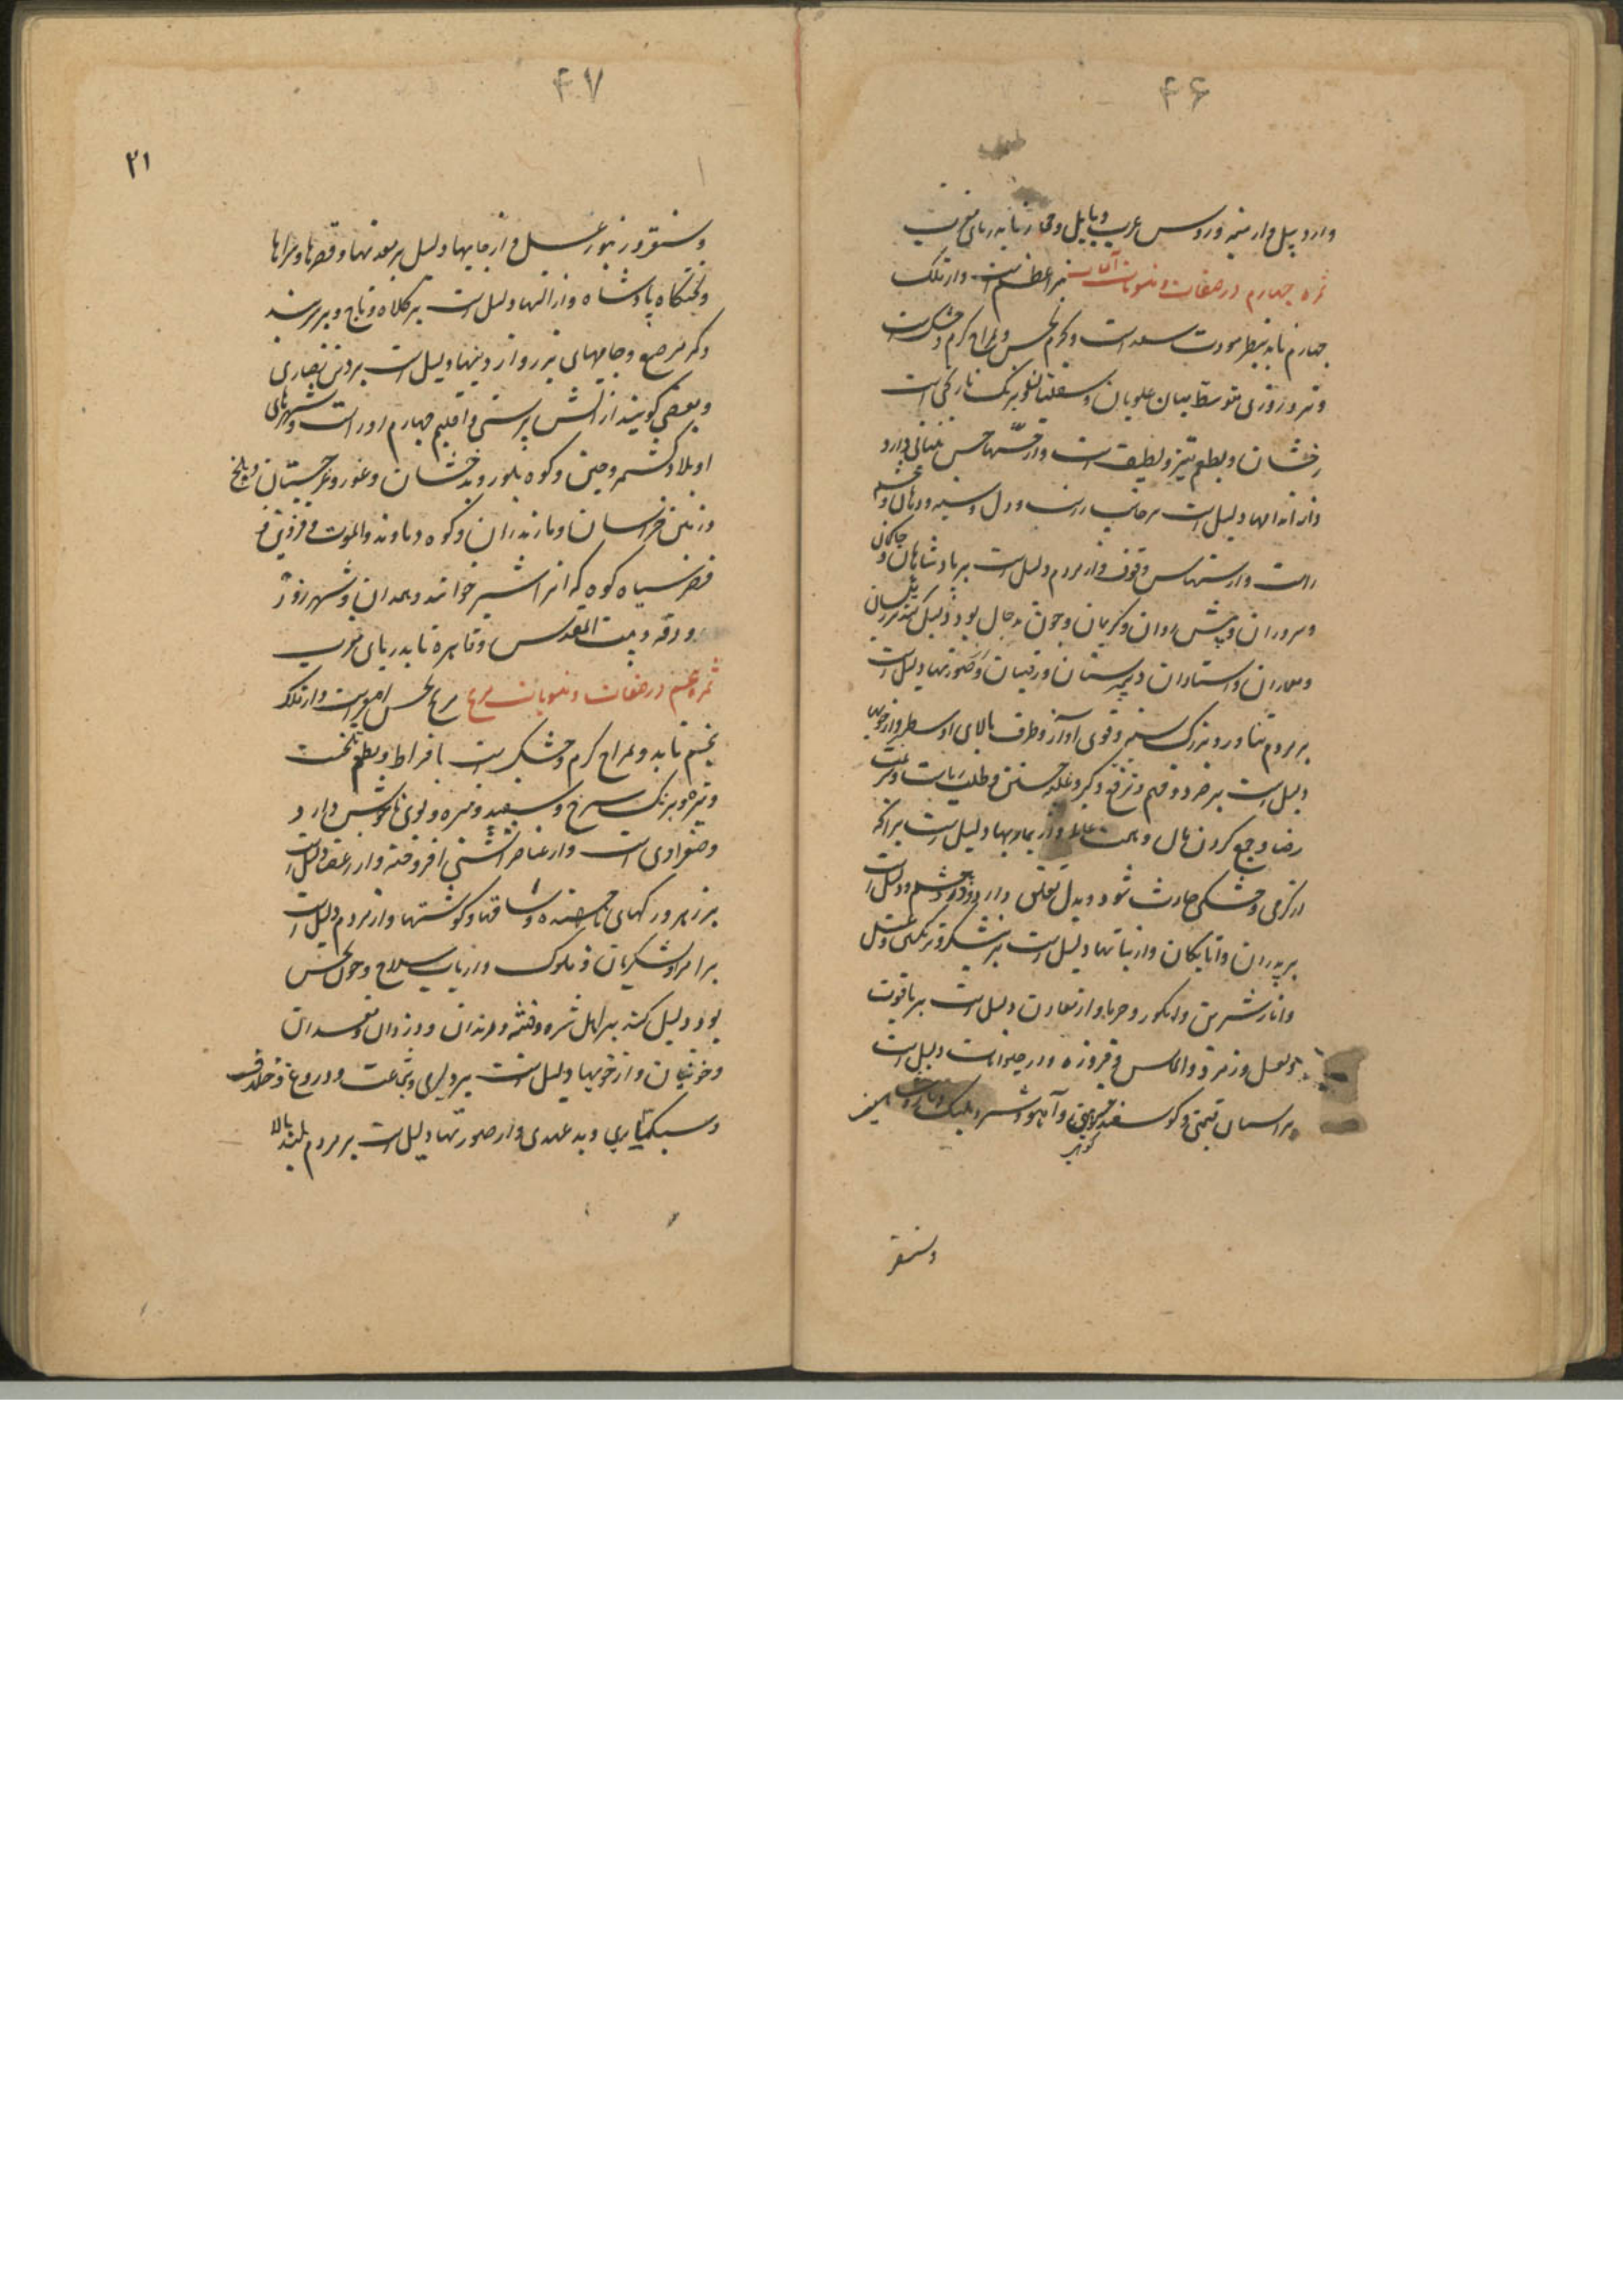 ۴۶
وارد پیل و ارمنیه و روس عرب و بابل و تا بدریای مغرب
ثمره چهارم در صفات و منسوبات آفتاب نیر اعظم است و از فلک
چهارم تابد بنظر مودت سعد است و بجرم نحس و بمزاج گرم و خشک است
و نر و روزی متوسط میان علویان و سفلیان و برنگ نارنجی است
رخشان و بطعم تیز و لطیف است و از حسها حس بینائی دارد
و از اندامها دلیل است بر جانب راست و دل و سینه و دهان و چشم
راست و از مردم دلیل است بر پادشاهان و حاکمان
و سروران و پیش روان و کریمان و چون بد حال بود دلیل کند بر رئیسان
و معماران و استادان و رقیبان و از صورتها دلیل است
بر مردم تناور و بزرگ سینه و قوی آواز و طرف بالای اوسط و از خویها
دلیل است بر خرد و فهم و ترفع و کبر و غلبه جستن و طلب ریاست و سرعت
رضا و جمع کردن مال و همت عالی و از بیماریها دلیل است بر آنکه
از گرمی و خشکی حادث شود و بدل تعلق دارد و درد چشم و دلیل است
بر پدران و اتابکان و از نباتها دلیل است بر نیشکر و ترنگبین و عسل
و انار شیرین و انگور و خرما و از معادن دلیل است بر یاقوت
و لعل و زمرد و الماس و فیروزه و از حیوانات دلیل است
بر اسبان قیمتی و گوسفند کوهی و آهو و شیر و پلنگ
وسنقر
۴۷
۲۱
وسنقر و زنبور عسل و از جایها دلیل بر معدنها و قصرها و سراها
و تختگاه پادشاه و از آلتها دلیل است بر کلاه و تاج و سربند
و کمر مرصع و جامهای زر و از دینها دلیل است بر دین نصاری
و بعضی گویند از آتش پرستی و اقلیم چهارم اوراست و شهرهای
او بلاد کشمر و چین و کوه بلور و بدخشان و غور و غرجستان و بلخ
و زمین خراسان و مازندران و کوه دماوند و الموت و قزوین و
قصر سیاه کوه که آنرا شیر خوانند و همدان و شهر زور
و رقه و بیت المقدس و قاهره تا بدریای مغرب
ثمره پنجم در صفات و منسوبات مریخ مریخ نحس اصغر است و از فلک
پنجم تابد و بمزاج گرم و خشک است بافراط و بطعم تلخ است
و تیره و برنگ سرخ و سفید و تیره و بوی ناخوش دارد
و صفراوی است و از عناصر آتشی افروخته و از اعضا دلیل است
بر زهره و رگهای ناجهنده و ساقها و گوشتها و از مردم دلیل است
بر امرا و لشکریان و ملوک و ارباب سلاح و چون نحس
بود دلیل کند بر اهل شره و فتنه و رندان و دزدان و مفسدان
و خونیان و از خویها دلیل است بر دلیری و شجاعت و دروغ و خلاف
و سبکساری و بد عهدی و از صورتها دلیل است بر مردم بلند بالا